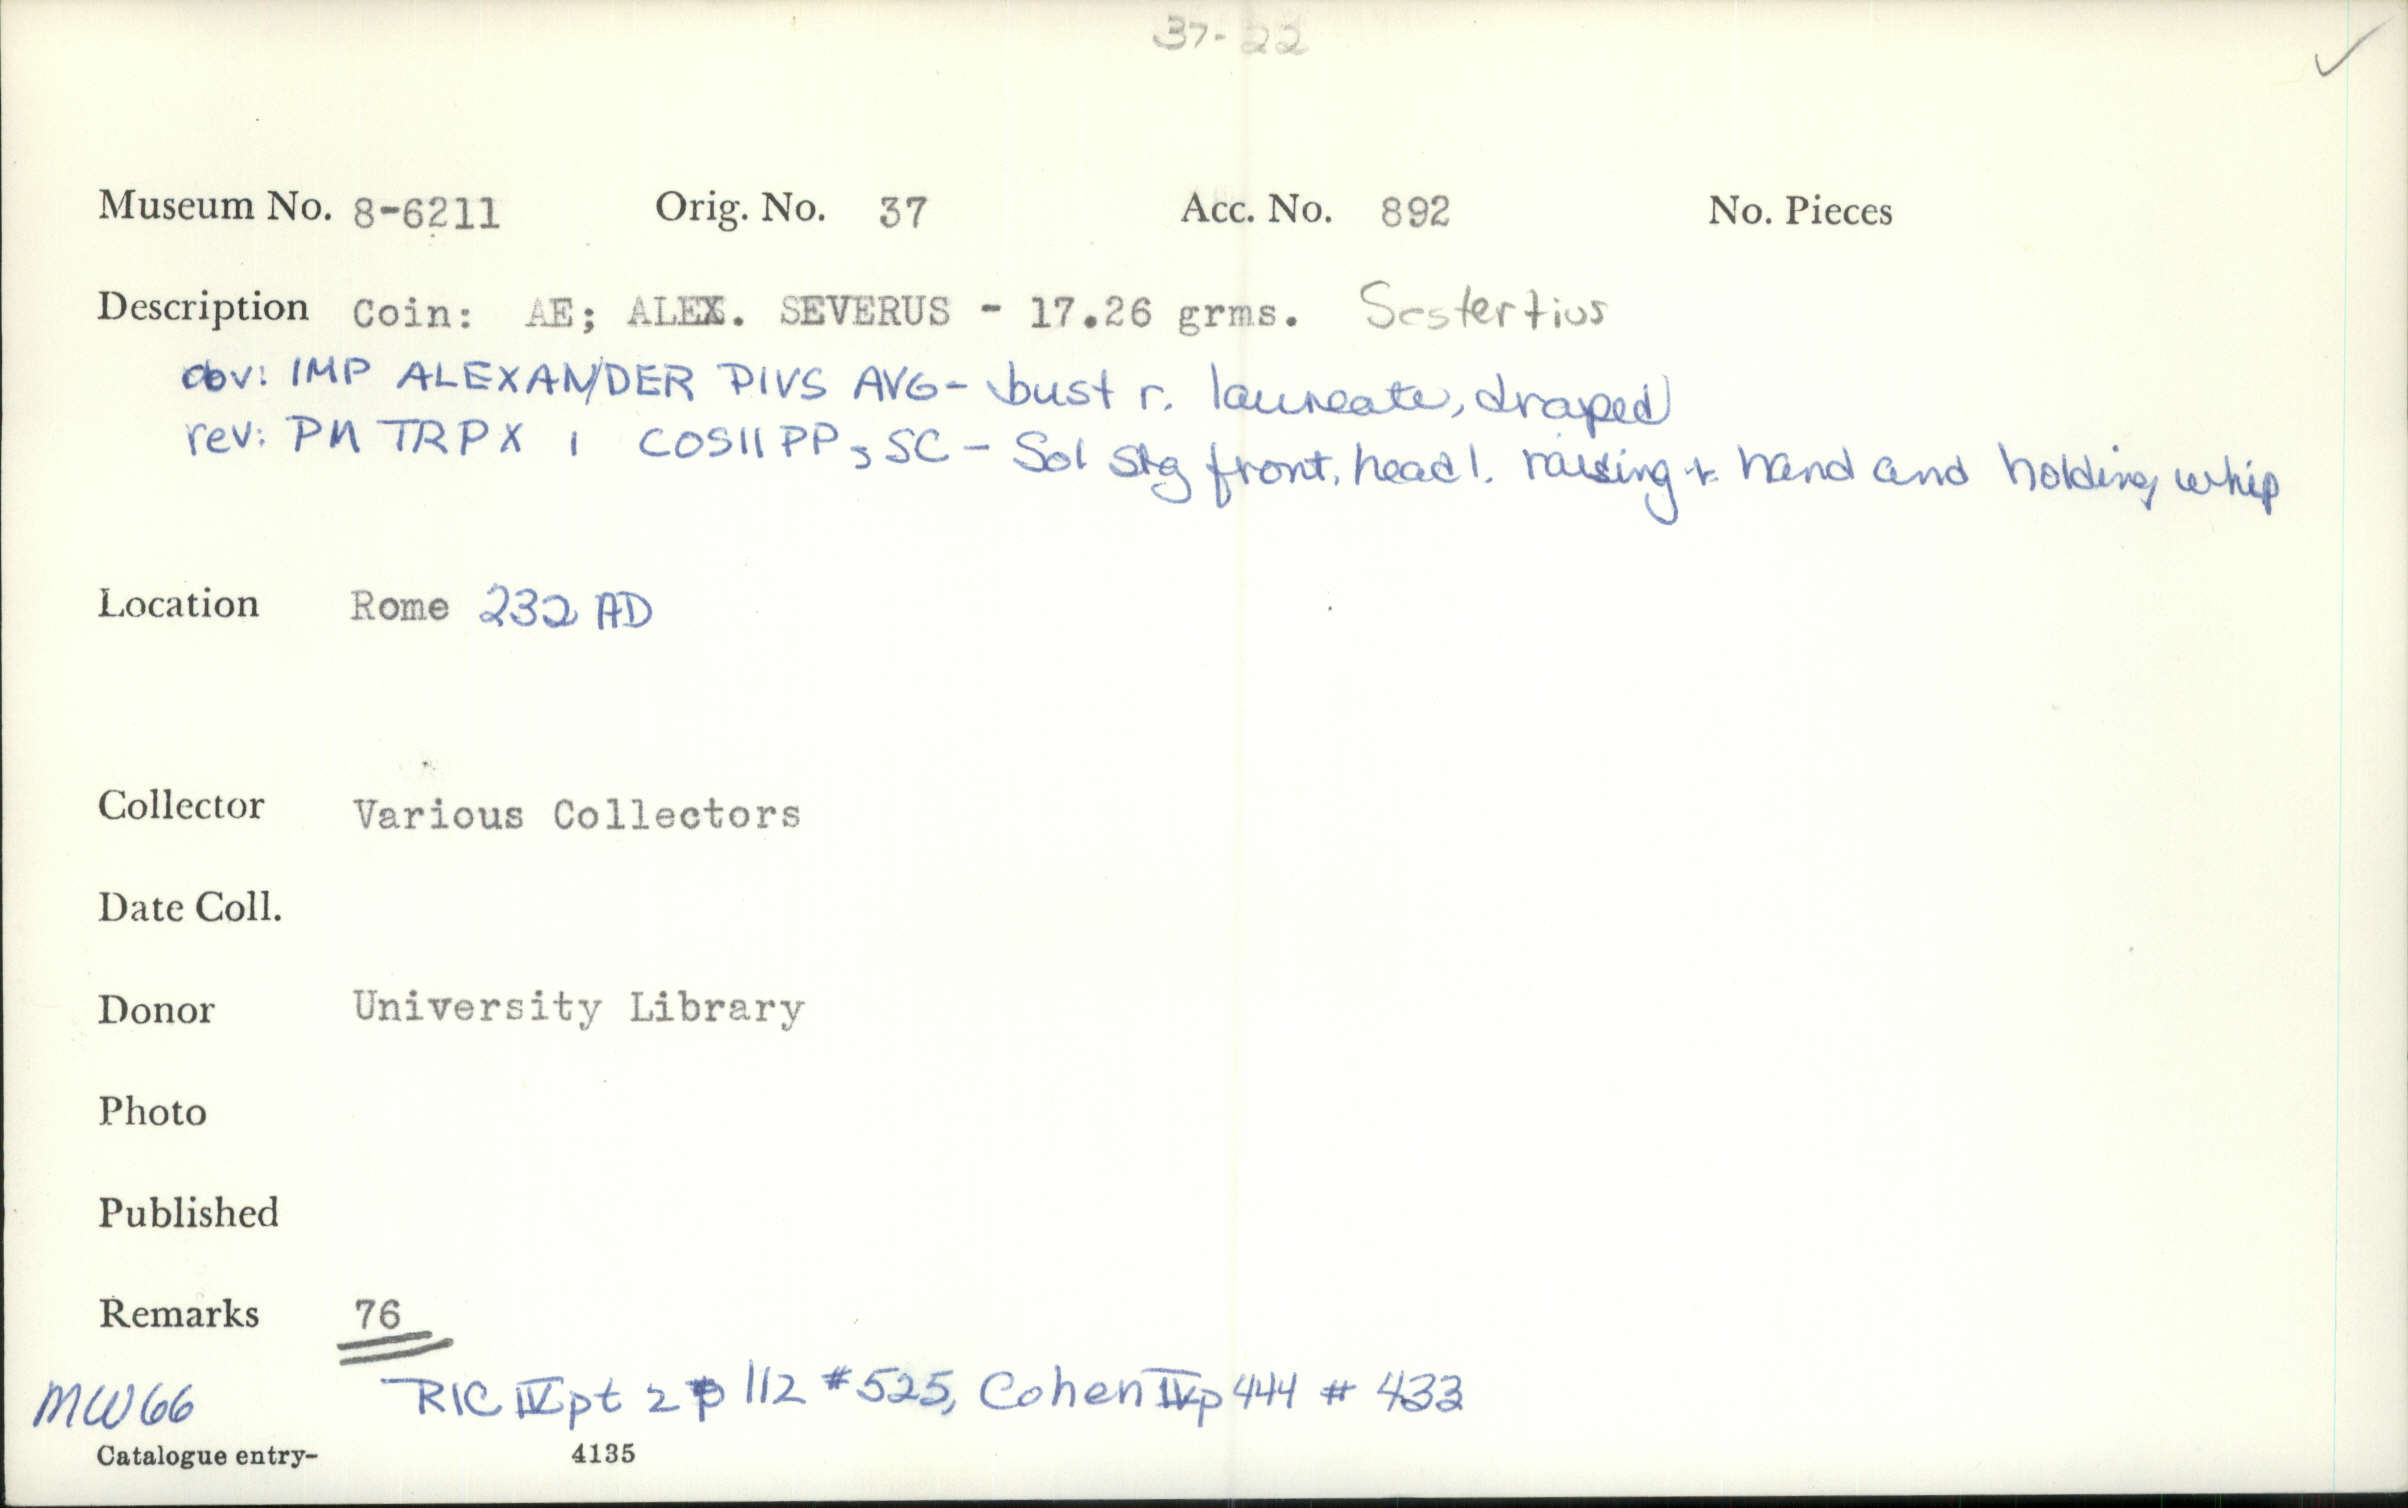 37-22 ✓
Museum No. 8-6211 Orig. No. 37 Acc. No. 892 No. Pieces
Description Coin: AE; ALEX. SEVERUS - 17.26 grms. Sestertius
obv: IMP ALEXAN/DER PIVS AVG- bust r. laureate, draped
rev: PM TRP X I COSII PP, SC - Sol stg front, head l. raising r. hand and holding whip
Location Rome 232 AD
Collector Various Collectors
Date Coll.
Donor University Library
Photo
Published
Remarks 76
MW66 RIC IV pt 2 p 112 #525, Cohen IV p 444 # 433
Catalogue entry- 4135